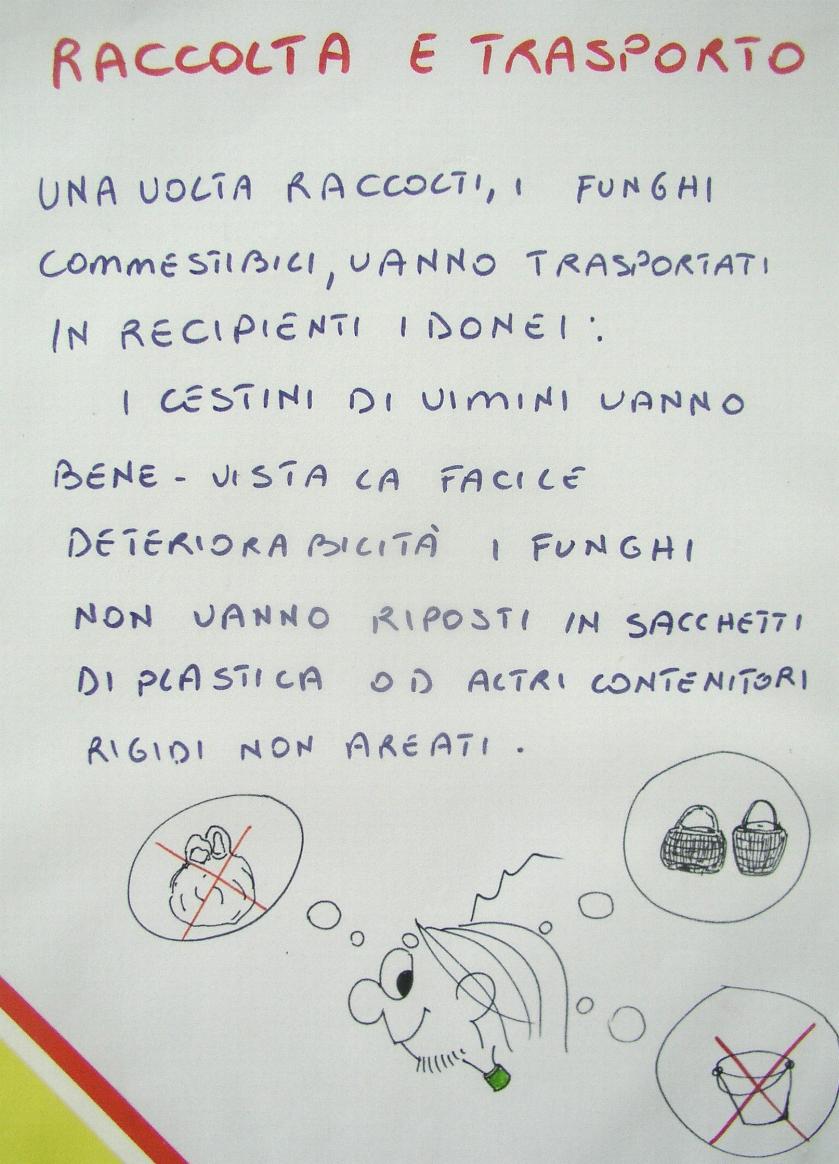 RACCOLTA E TRASPORTO
UNA VOLTA RACCOLTI, I FUNGHI
COMMESTIBILI, VANNO TRASPORTATI
IN RECIPIENTI IDONEI:
I CESTINI DI VIMINI VANNO
BENE - VISTA LA FACILE
DETERIORABILITÀ I FUNGHI
NON VANNO RIPOSTI IN SACCHETTI
DI PLASTICA OD ALTRI CONTENITORI
RIGIDI NON AREATI.